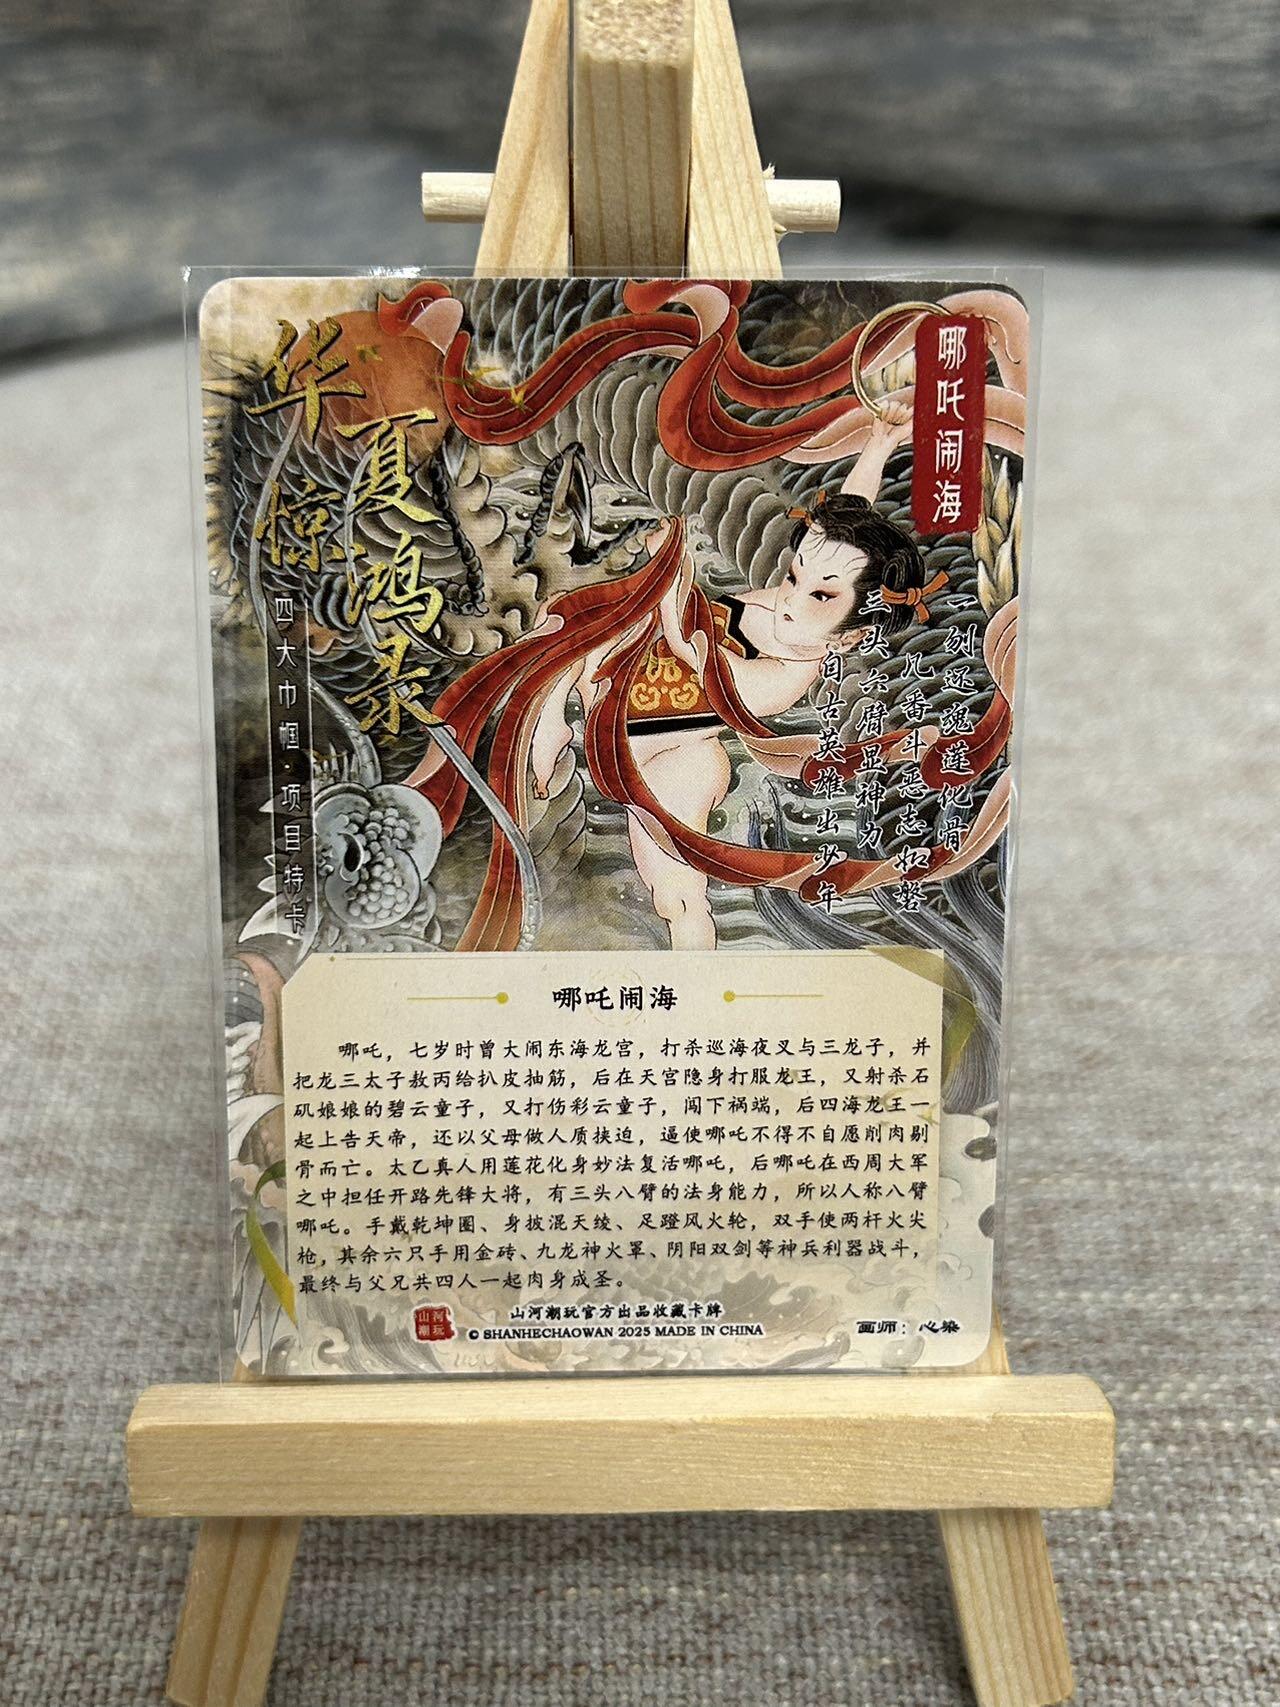 华夏惊鸿录
四大巾帼·项目特卡
哪吒闹海
一刎还魂莲化骨
几番斗恶志如磐
三头六臂显神力
自古英雄出少年
哪吒闹海
哪吒，七岁时曾大闹东海龙宫，打杀巡海夜叉与三龙子，并
把龙三太子敖丙给扒皮抽筋，后在天宫隐身打服龙王，又射杀石
矶娘娘的碧云童子，又打伤彩云童子，闯下祸端，后四海龙王一
起上告天帝，还以父母做人质挟迫，逼使哪吒不得不自愿削肉剔
骨而亡。太乙真人用莲花化身妙法复活哪吒，后哪吒在西周大军
之中担任开路先锋大将，有三头八臂的法身能力，所以人称八臂
哪吒。手戴乾坤圈、身披混天绫、足蹬风火轮，双手使两杆火尖
枪，其余六只手用金砖、九龙神火罩、阴阳双剑等神兵利器战斗，
最终与父兄共四人一起肉身成圣。
山河潮玩
山河潮玩官方出品收藏卡牌
© SHANHECHAOWAN 2025 MADE IN CHINA
画师：心染